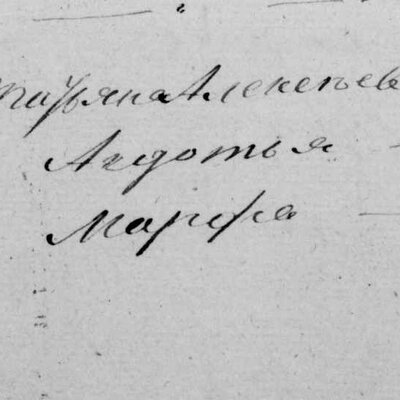 Татьяна Алексеев
Авдотья
Марфа